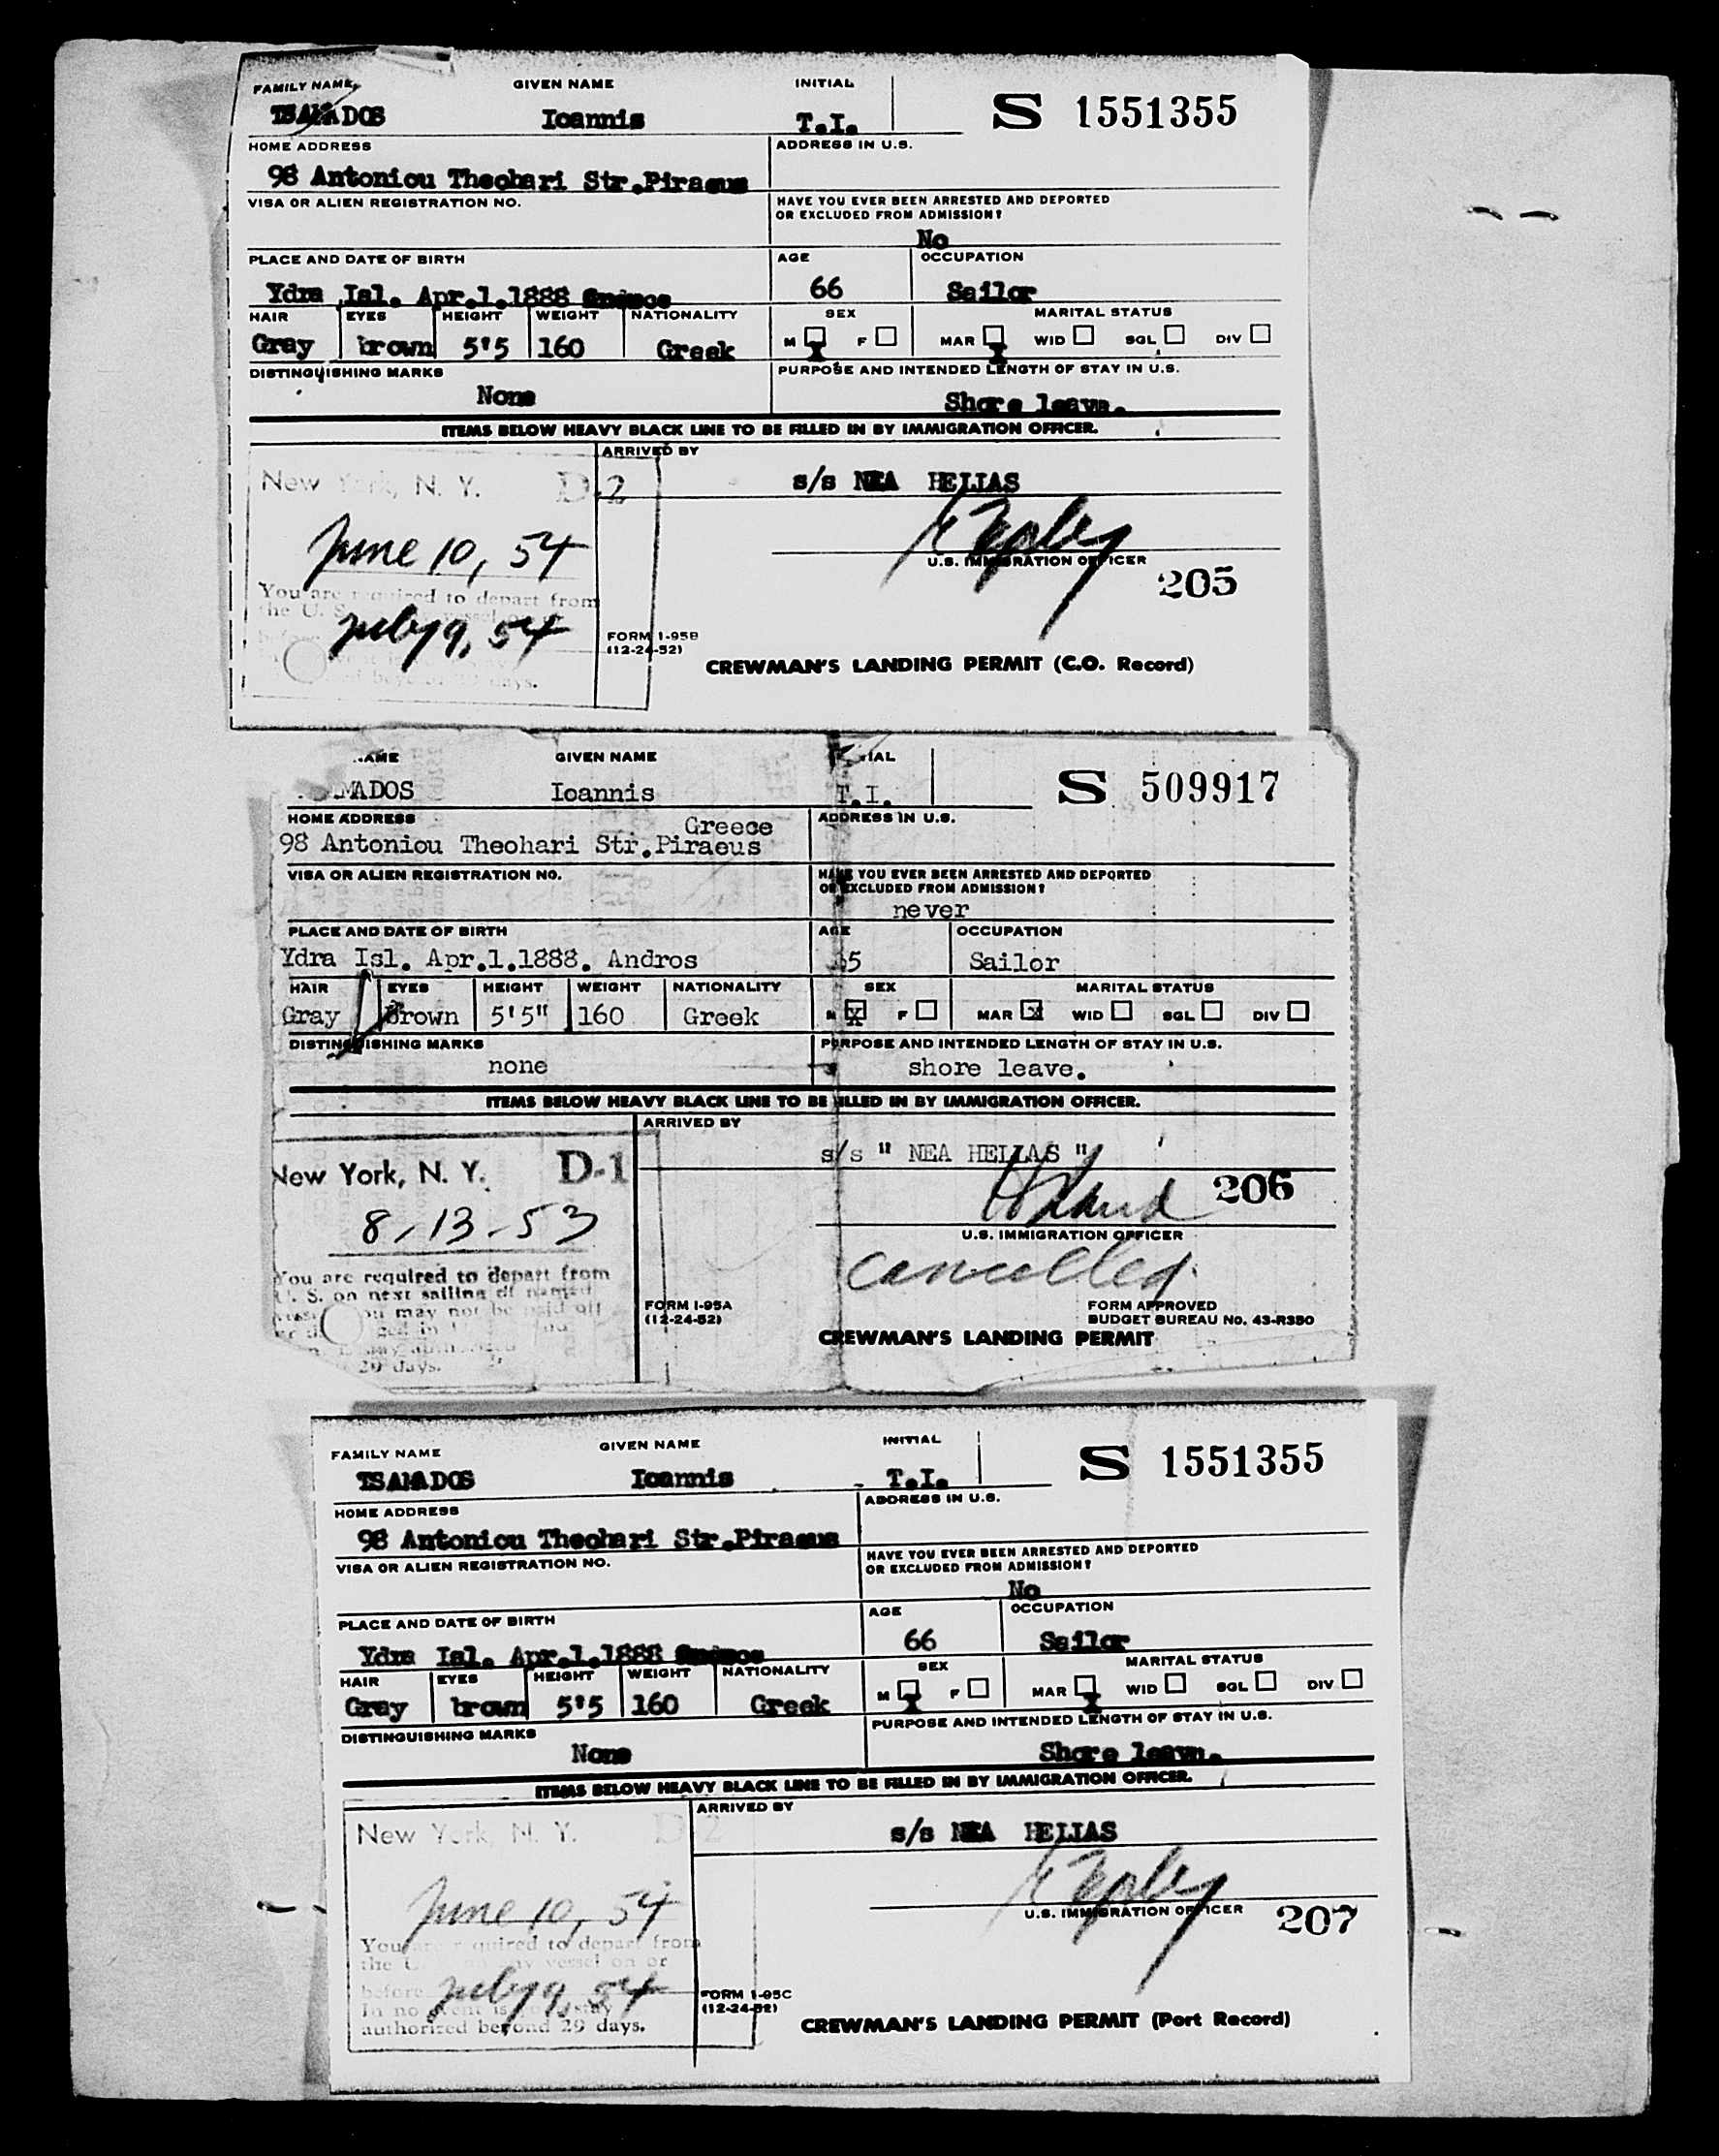 FAMILY NAME GIVEN NAME INITIAL
TSAMADOS Ioannis T.I. S 1551355
HOME ADDRESS ADDRESS IN U.S.
98 Antoniou Theohari Str.Piraeus
VISA OR ALIEN REGISTRATION NO. HAVE YOU EVER BEEN ARRESTED AND DEPORTED
OR EXCLUDED FROM ADMISSION?
No
PLACE AND DATE OF BIRTH AGE OCCUPATION
Ydra Isl. Apr.1.1888 66 Sailor
HAIR EYES HEIGHT WEIGHT NATIONALITY SEX MARITAL STATUS
Gray brown 5'5 160 Greek M X F MAR X WID SGL DIV
DISTINGUISHING MARKS PURPOSE AND INTENDED LENGTH OF STAY IN U.S.
None Shore leave.
ITEMS BELOW HEAVY BLACK LINE TO BE FILLED IN BY IMMIGRATION OFFICER.
ARRIVED BY
New York, N. Y. D-2 s/s NEA HELLAS
June 10, 54
U.S. IMMIGRATION OFFICER
205
You are required to depart from
the U. S.
July 9, 54
FORM I-95B
(12-24-52)
CREWMAN'S LANDING PERMIT (C.O. Record)
beyond 29 days.
NAME GIVEN NAME INITIAL
MADOS Ioannis T.I. S 509917
HOME ADDRESS ADDRESS IN U.S.
Greece
98 Antoniou Theohari Str.Piraeus
VISA OR ALIEN REGISTRATION NO. HAVE YOU EVER BEEN ARRESTED AND DEPORTED
OR EXCLUDED FROM ADMISSION?
never
PLACE AND DATE OF BIRTH AGE OCCUPATION
Ydra Isl. Apr.1.1888. Andros 65 Sailor
HAIR EYES HEIGHT WEIGHT NATIONALITY SEX MARITAL STATUS
Gray Brown 5'5" 160 Greek M X F MAR X WID SGL DIV
DISTINGUISHING MARKS PURPOSE AND INTENDED LENGTH OF STAY IN U.S.
none shore leave.
ITEMS BELOW HEAVY BLACK LINE TO BE FILLED IN BY IMMIGRATION OFFICER.
ARRIVED BY
s/s " NEA HELLAS "
New York, N. Y. D-1 206
8-13-53
U.S. IMMIGRATION OFFICER
cancelled
You are required to depart from
U. S. on next sailing of named
you may not be paid off
FORM I-95A FORM APPROVED
(12-24-52) BUDGET BUREAU No. 43-R350
CREWMAN'S LANDING PERMIT
29 days.
FAMILY NAME GIVEN NAME INITIAL
TSAMADOS Ioannis T.I. S 1551355
HOME ADDRESS ADDRESS IN U.S.
98 Antoniou Theohari Str.Piraeus
VISA OR ALIEN REGISTRATION NO. HAVE YOU EVER BEEN ARRESTED AND DEPORTED
OR EXCLUDED FROM ADMISSION?
No
PLACE AND DATE OF BIRTH AGE OCCUPATION
Ydra Isl. Apr.1.1888 66 Sailor
HAIR EYES HEIGHT WEIGHT NATIONALITY SEX MARITAL STATUS
Gray brown 5'5 160 Greek M X F MAR X WID SGL DIV
DISTINGUISHING MARKS PURPOSE AND INTENDED LENGTH OF STAY IN U.S.
None Shore leave.
ITEMS BELOW HEAVY BLACK LINE TO BE FILLED IN BY IMMIGRATION OFFICER.
ARRIVED BY
New York, N. Y. D 2 s/s NEA HELLAS
June 10, 54
U.S. IMMIGRATION OFFICER 207
You are required to depart from
the U. vessel on or
before July 9, 54
In no event is stay
authorized beyond 29 days.
FORM I-95C
(12-24-52)
CREWMAN'S LANDING PERMIT (Port Record)